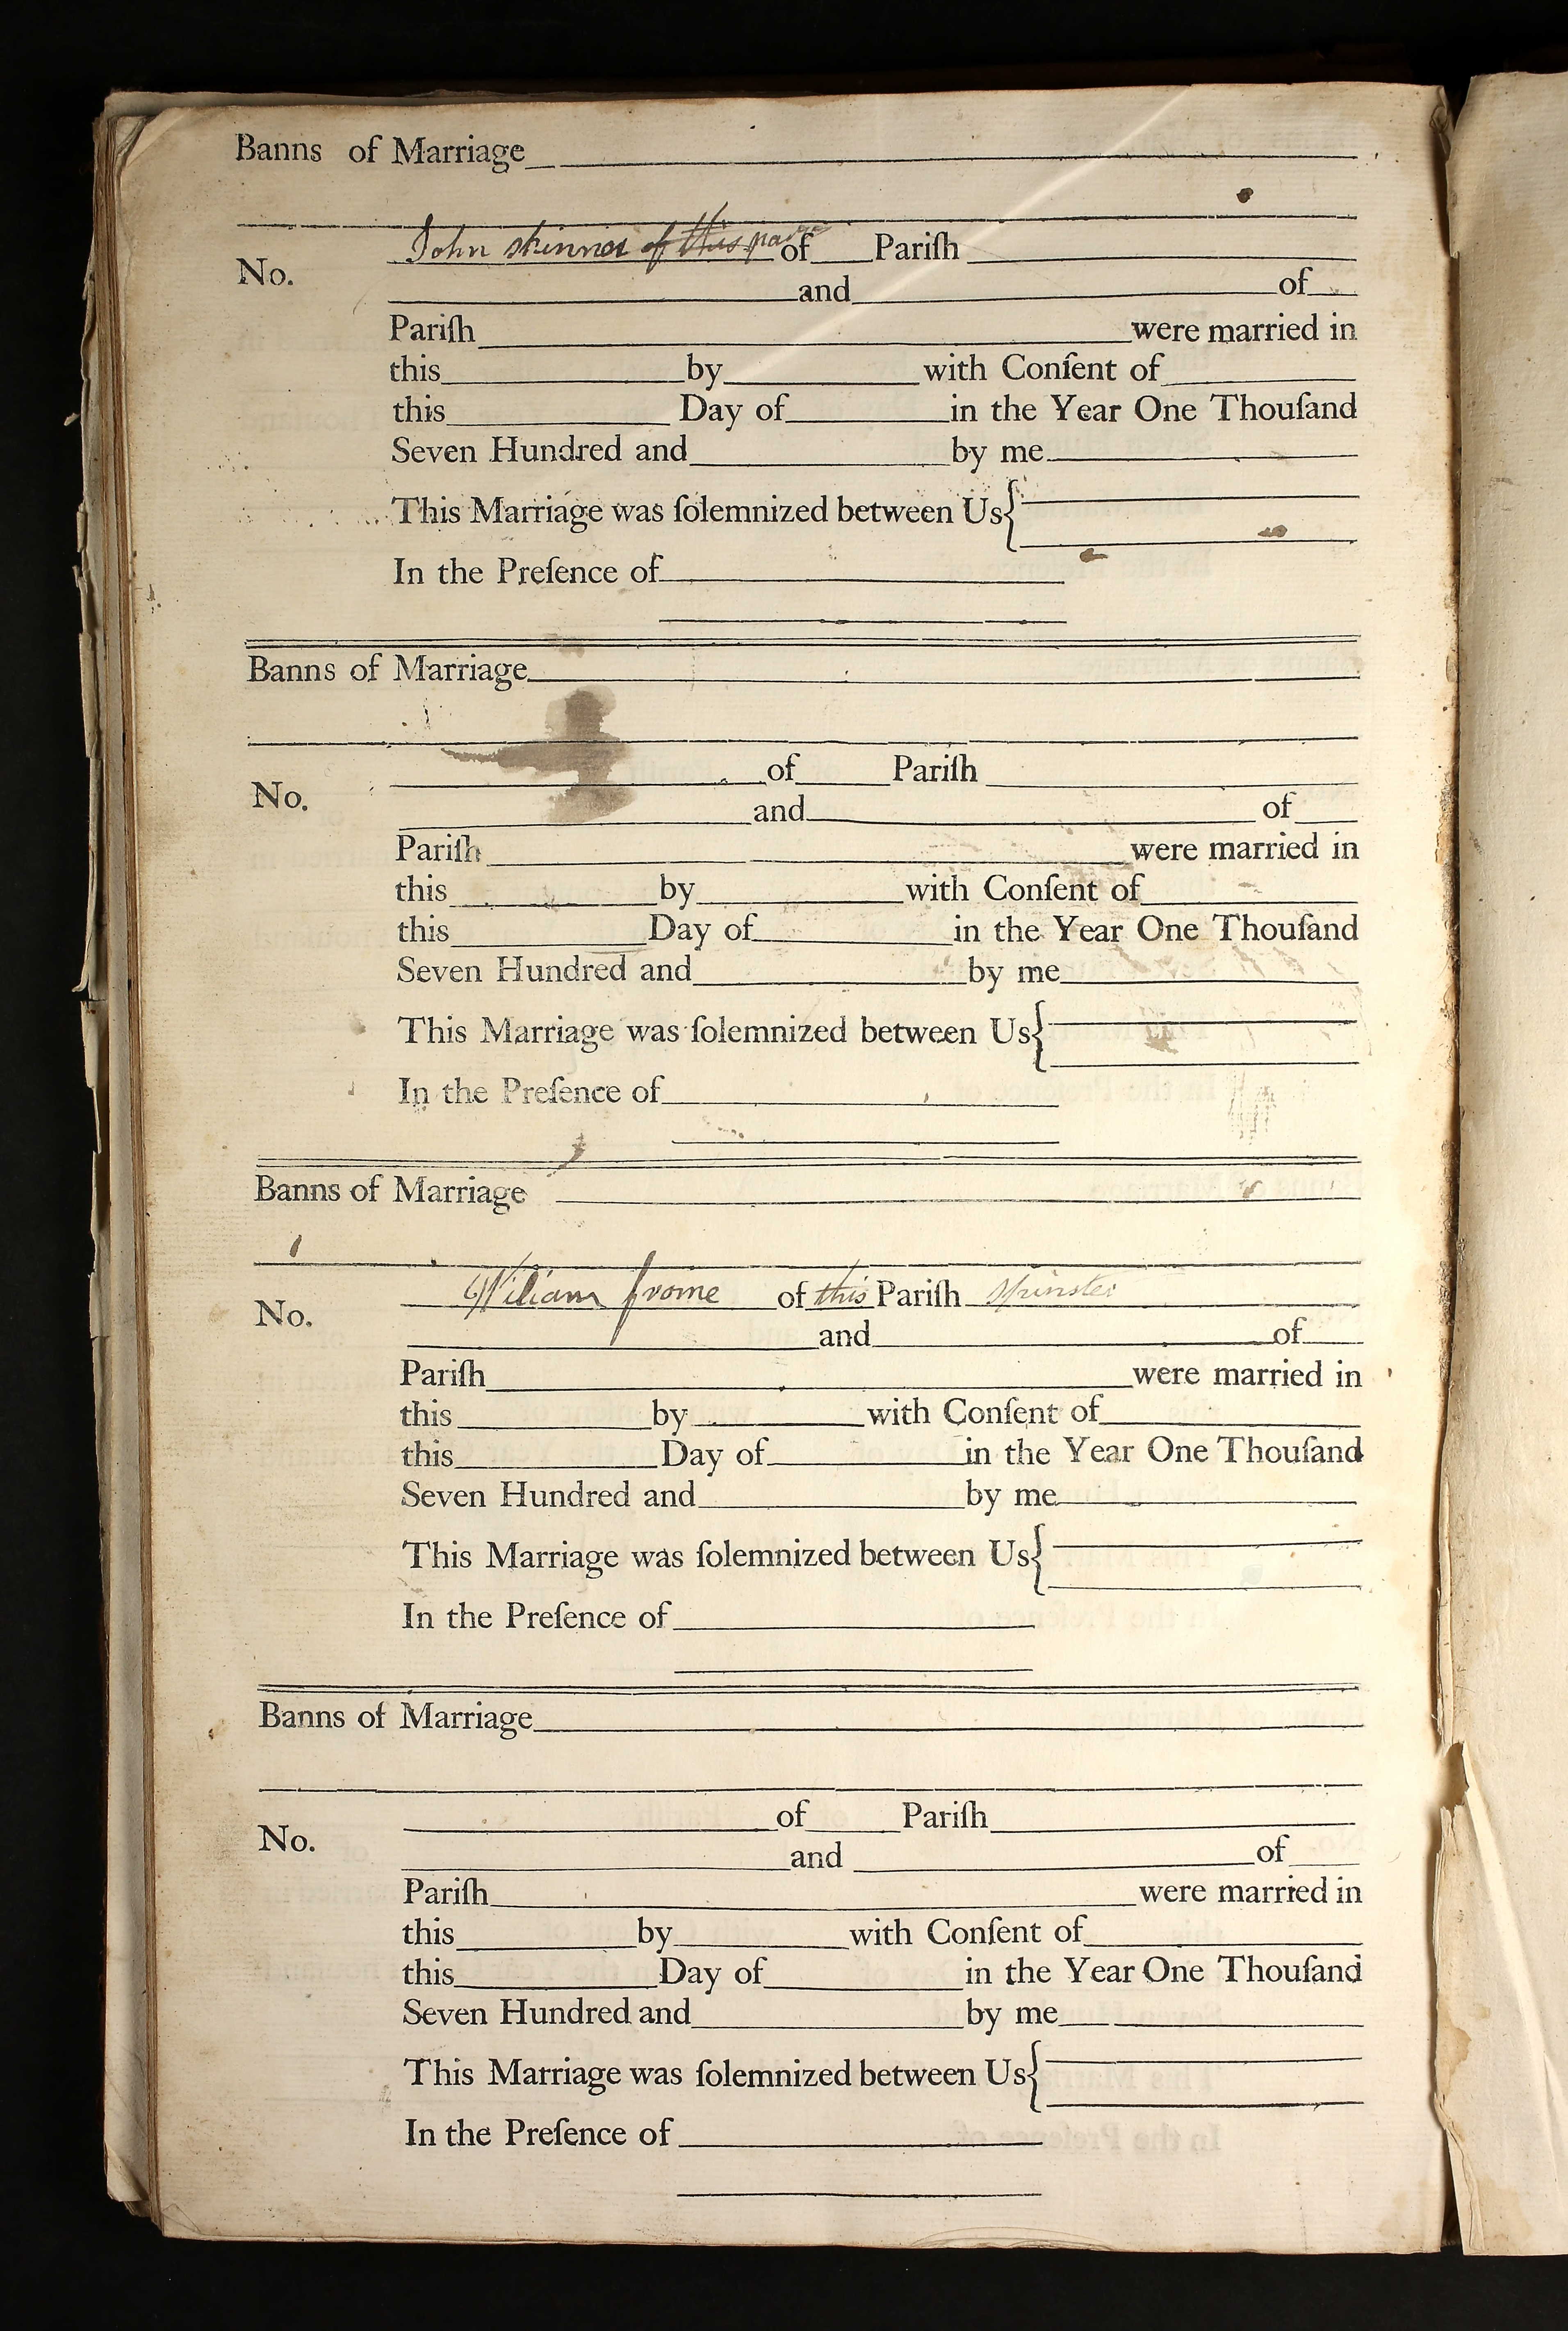 Banns of Marriage
John skinner of this par of Pariſh
No.
and of
Pariſh were married in
this by with Conſent of
this Day of in the Year One Thouſand
Seven Hundred and by me
This Marriage was ſolemnized between Us
In the Preſence of
Banns of Marriage
of Pariſh
No.
and of
Pariſh were married in
this by with Conſent of
this Day of in the Year One Thouſand
Seven Hundred and by me
This Marriage was ſolemnized between Us
In the Preſence of
Banns of Marriage
William frome of this Pariſh Spinster
No.
and of
Pariſh were married in
this by with Conſent of
this Day of in the Year One Thouſand
Seven Hundred and by me
This Marriage was ſolemnized between Us
In the Preſence of
Banns of Marriage
of Pariſh
No.
and of
Pariſh were married in
this by with Conſent of
this Day of in the Year One Thouſand
Seven Hundred and by me
This Marriage was ſolemnized between Us
In the Preſence of